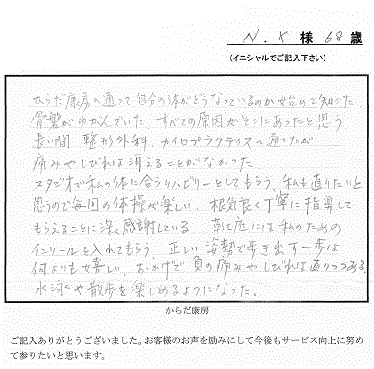 N.K 様 68 歳
(イニシャルでご記入下さい)
からだ康房へ通って自分の体がどうなっているのか始めて知った
骨盤がゆがんでいた すべての原因がそこにあったと思う
長い間 整形外科、カイロプラクティスへ通ったが
痛みやしびれは消えることがなかった
スタジオで私の体に合うリハビリーをしてもらう、私も直りたいと
思うので毎回の体操が楽しい、根気良く丁寧に指導して
もらえることに深く感謝している 靴底には私のための
インソールを入れてもらう、正しい姿勢で歩き出す一歩は
何よりも嬉しい、おかげで 肩の痛みやしびれは直りつつある、
水泳や散歩を楽しめるようになった。
からだ康房
ご記入ありがとうございました。お客様のお声を励みにして今後もサービス向上に努め
て参りたいと思います。